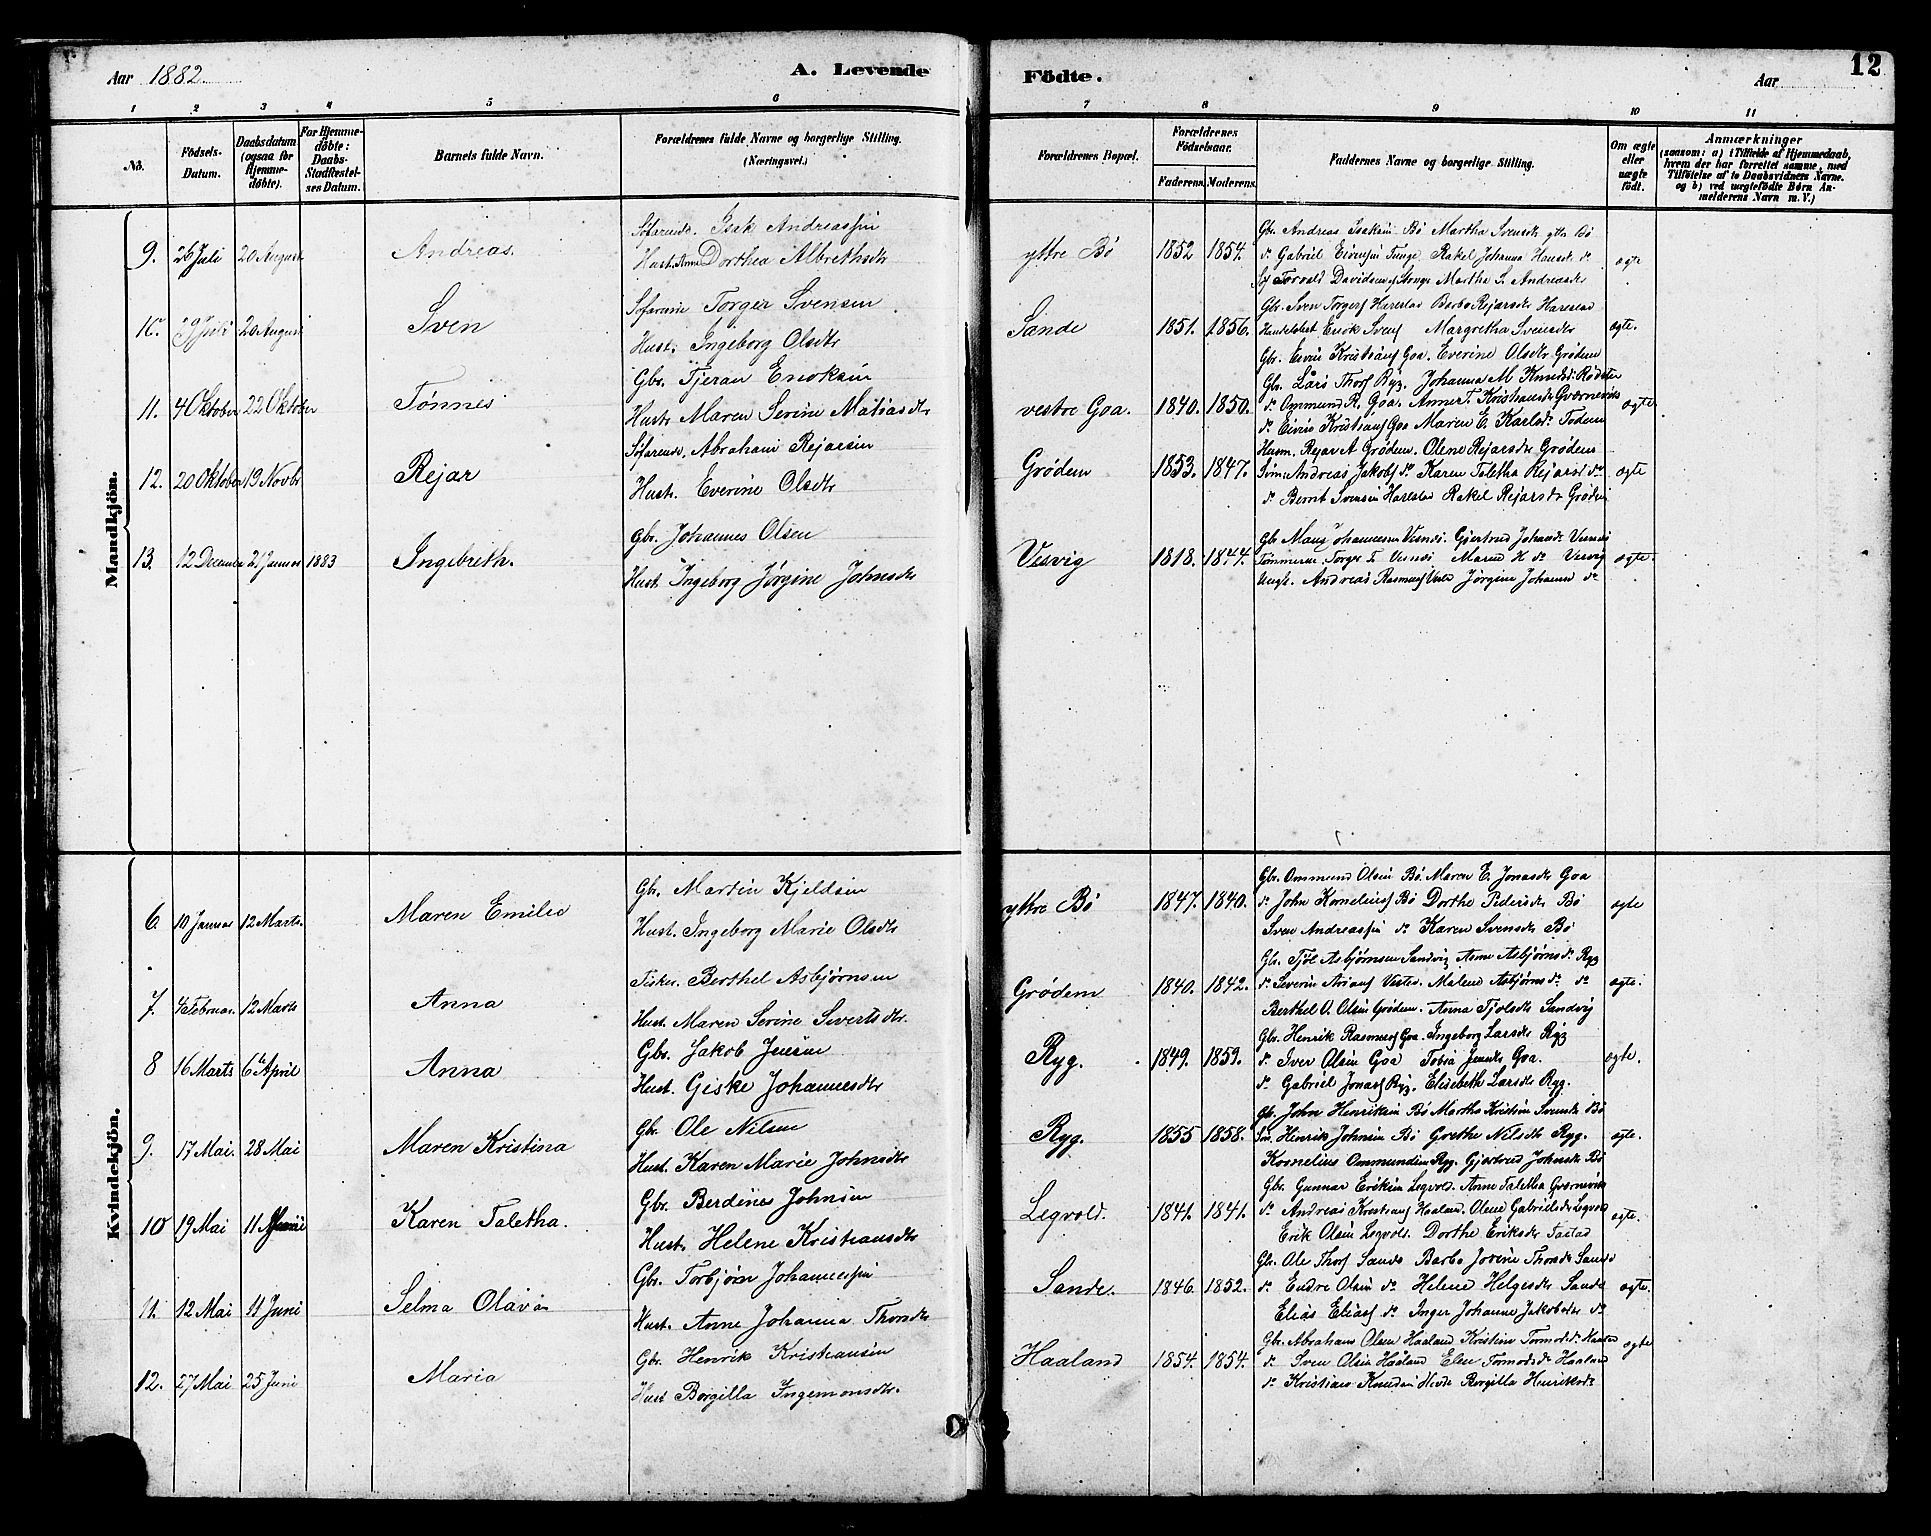 Aar 1882
A. Levende Födte.
Aar
12
1 2 3 4 5 6 7 8 9 10 11
No.
Födsels-Datum.
Daabsdatum (ogsaa for Hjemme-døbte).
For Hjemme-døbte: Daabs-Stadfæstel-ses Datum.
Barnets fulde Navn.
Forældrenes fulde Navne og borgerlige Stilling. (Næringsvei.)
Forældrenes Bopæl.
Forældrenes Födselsaar.
Faderens. Moderens.
Faddernes Navne og borgerlige Stilling.
Om ægte eller uægte födt.
Anmærkninger
(saasom: a) i Tilfælde af Hjemmedaab, hvem der har forrettet samme, med Tilföielse af to Daabsvidners Navne. og b) ved uægtefödte Børn An-melderens Navn m. V.)
Mandkjön.
9. 26 Juli 20 August Andreas. Søfarende. Isak Andreassen
Hust. Anne Dorthea Albrethsdtr
yttre Bö 1852 1854. ægte
Gbr. Andreas Isaksen Bö Martha Svensdtr yttre Bö
do Gabriel Eivensen Tunge Rakel Johanna Hansdtr do
Torvald Davidsen Martha S. Andreasdtr
10. 29 Juli 20 August Sven Torger Svensen
Hust. Ingeborg Olsdtr
Sande 1851. 1856. ægte.
Gbr. Sven Torgers Harestad Barbo Rejarsdtr Harestad
Enok Svens Margretha Svensdtr
Gbr. Eivin Kristians Goa. Everine Olsdtr Grödem
11. 4 Oktober 22 Oktober Tønnes Gbr. Tjeran Enoksen
Hust. Maren Serine Matiasdtr
vestre Goa. 1840. 1850. ægte
Gbr. Lars Thors Ryg. Johanna M. Knudsd.
do Ommund R. Goa. Kristiansdtr Goa
do Eivin Kristians Goa Maren E. Karlsd. Todnem
12. 20 Oktober 19 Novbr Rejar Søfarende. Abraham Rejarsen
Hust. Everine Olsdtr
Grødem 1853. 1847. ægte
Husm. Rejar A Grødem. Olene Rejarsdtr Grødem
Andreas Jakobs do Karen Taletha Rejarsd do
do Bernt Svensen Harestad Rakel Rejarsdtr Grødem
13. 12 December 21 Januar 1883 Ingebreth. Gbr. Johannes Olsen
Hust. Ingeborg Jørgine Johnsdtr
Viservig 1818. 1844. ægte.
Johannesen Gjertrud Johansdtr
Torger Maren H.
Ungk. Andreas Rasmus Jørgine Johansd do
Kvindekjön.
6. 10 Januar 12 Marts. Maren Emilie Gbr. Martin Kjeldsen
Hust. Ingeborg Marie Olsdtr
yttre Bö 1847. 1840. ægte
Gbr. Ommund Olsen Bö. Maren E. Jonasdtr Goa
do John Kornelius Bö Dorthe Pedersdtr Bö
Sven Andreassen do Karen Svensdtr Bö
7. 4 Februar. 12 Marts Anna Fisker. Berthel Asbjørnsen
Hust. Maren Serine Sivertsdtr.
Grødem 1840. 1842. ægte.
Gbr. Tjöl Asbjørnsen Sandvig Anne Asbjørnsd. Ryg
do Severin Malene Asbjørnsd. do
Berthel O. Olsen Grødem. Anna Tjølsdtr Sandvig
8 16 Marts 6te April Anna Gbr. Jakob Jensen
Hust. Giske Johannesdtr
Ryg. 1849. 1859. ægte.
Gbr. Henrik Rasmus Goa. Ingeborg Larsdtr Ryg
do Iver Olsen Goa Tobia Jensdtr Goa.
do Gabriel Jonas Ryg. Elisebeth Larsdtr Ryg.
9. 17 Mai. 28 Mai Maren Kristina Gbr. Ole Nilsen
Hust. Karen Marie Johnsdtr
Ryg. 1855 1858. ægte.
Gbr. John Henriksen Bö Martha Kristine Svensdtr Bö
Henrik Johnsen Bö Grethe Nilsdtr Ryg.
Kornelius Ommundsen Ryg. Gjertrud Johnsdtr Bö
10 19 Mai 11 Juni Karen Taletha. Gbr. Berdines Johnsen
Hust. Helene Kristiansdtr
Legvold. 1841. 1841. ægte.
Gbr. Gunnar Eriksen Legvold. Anne Taletha
do Andreas Kristians Haaland. Olene Gabrielsdtr Legvold
Erik Olsen Legvold. Dorthe Eriksdtr Tastad
11. 12 Mai 11 Juni Selma Olava Gbr. Torbjørn Johannessen
Hust. Anne Johanna Thorsdtr
Sande. 1846. 1852. ægte.
Gbr. Ole Thors Sande Barbo Jorine Thorsdtr Sande
do Endre Olsen do Helene Helgesdtr Sande
Elias Elias do Inger Johanne Jakobsdtr do
12. 27 Mai 25 Juni Maria Gbr. Henrik Kristiansen
Hust Borgilla Ingemonsdtr.
Haaland 1854. 1854. ægte
Gbr. Abraham Olsen Haaland Kristine Tormodsd. Haaland
do Sven Olsen Haaland Elen Tormodsd Haaland
do Kristian Knudsen Borgilla Henriksdtr